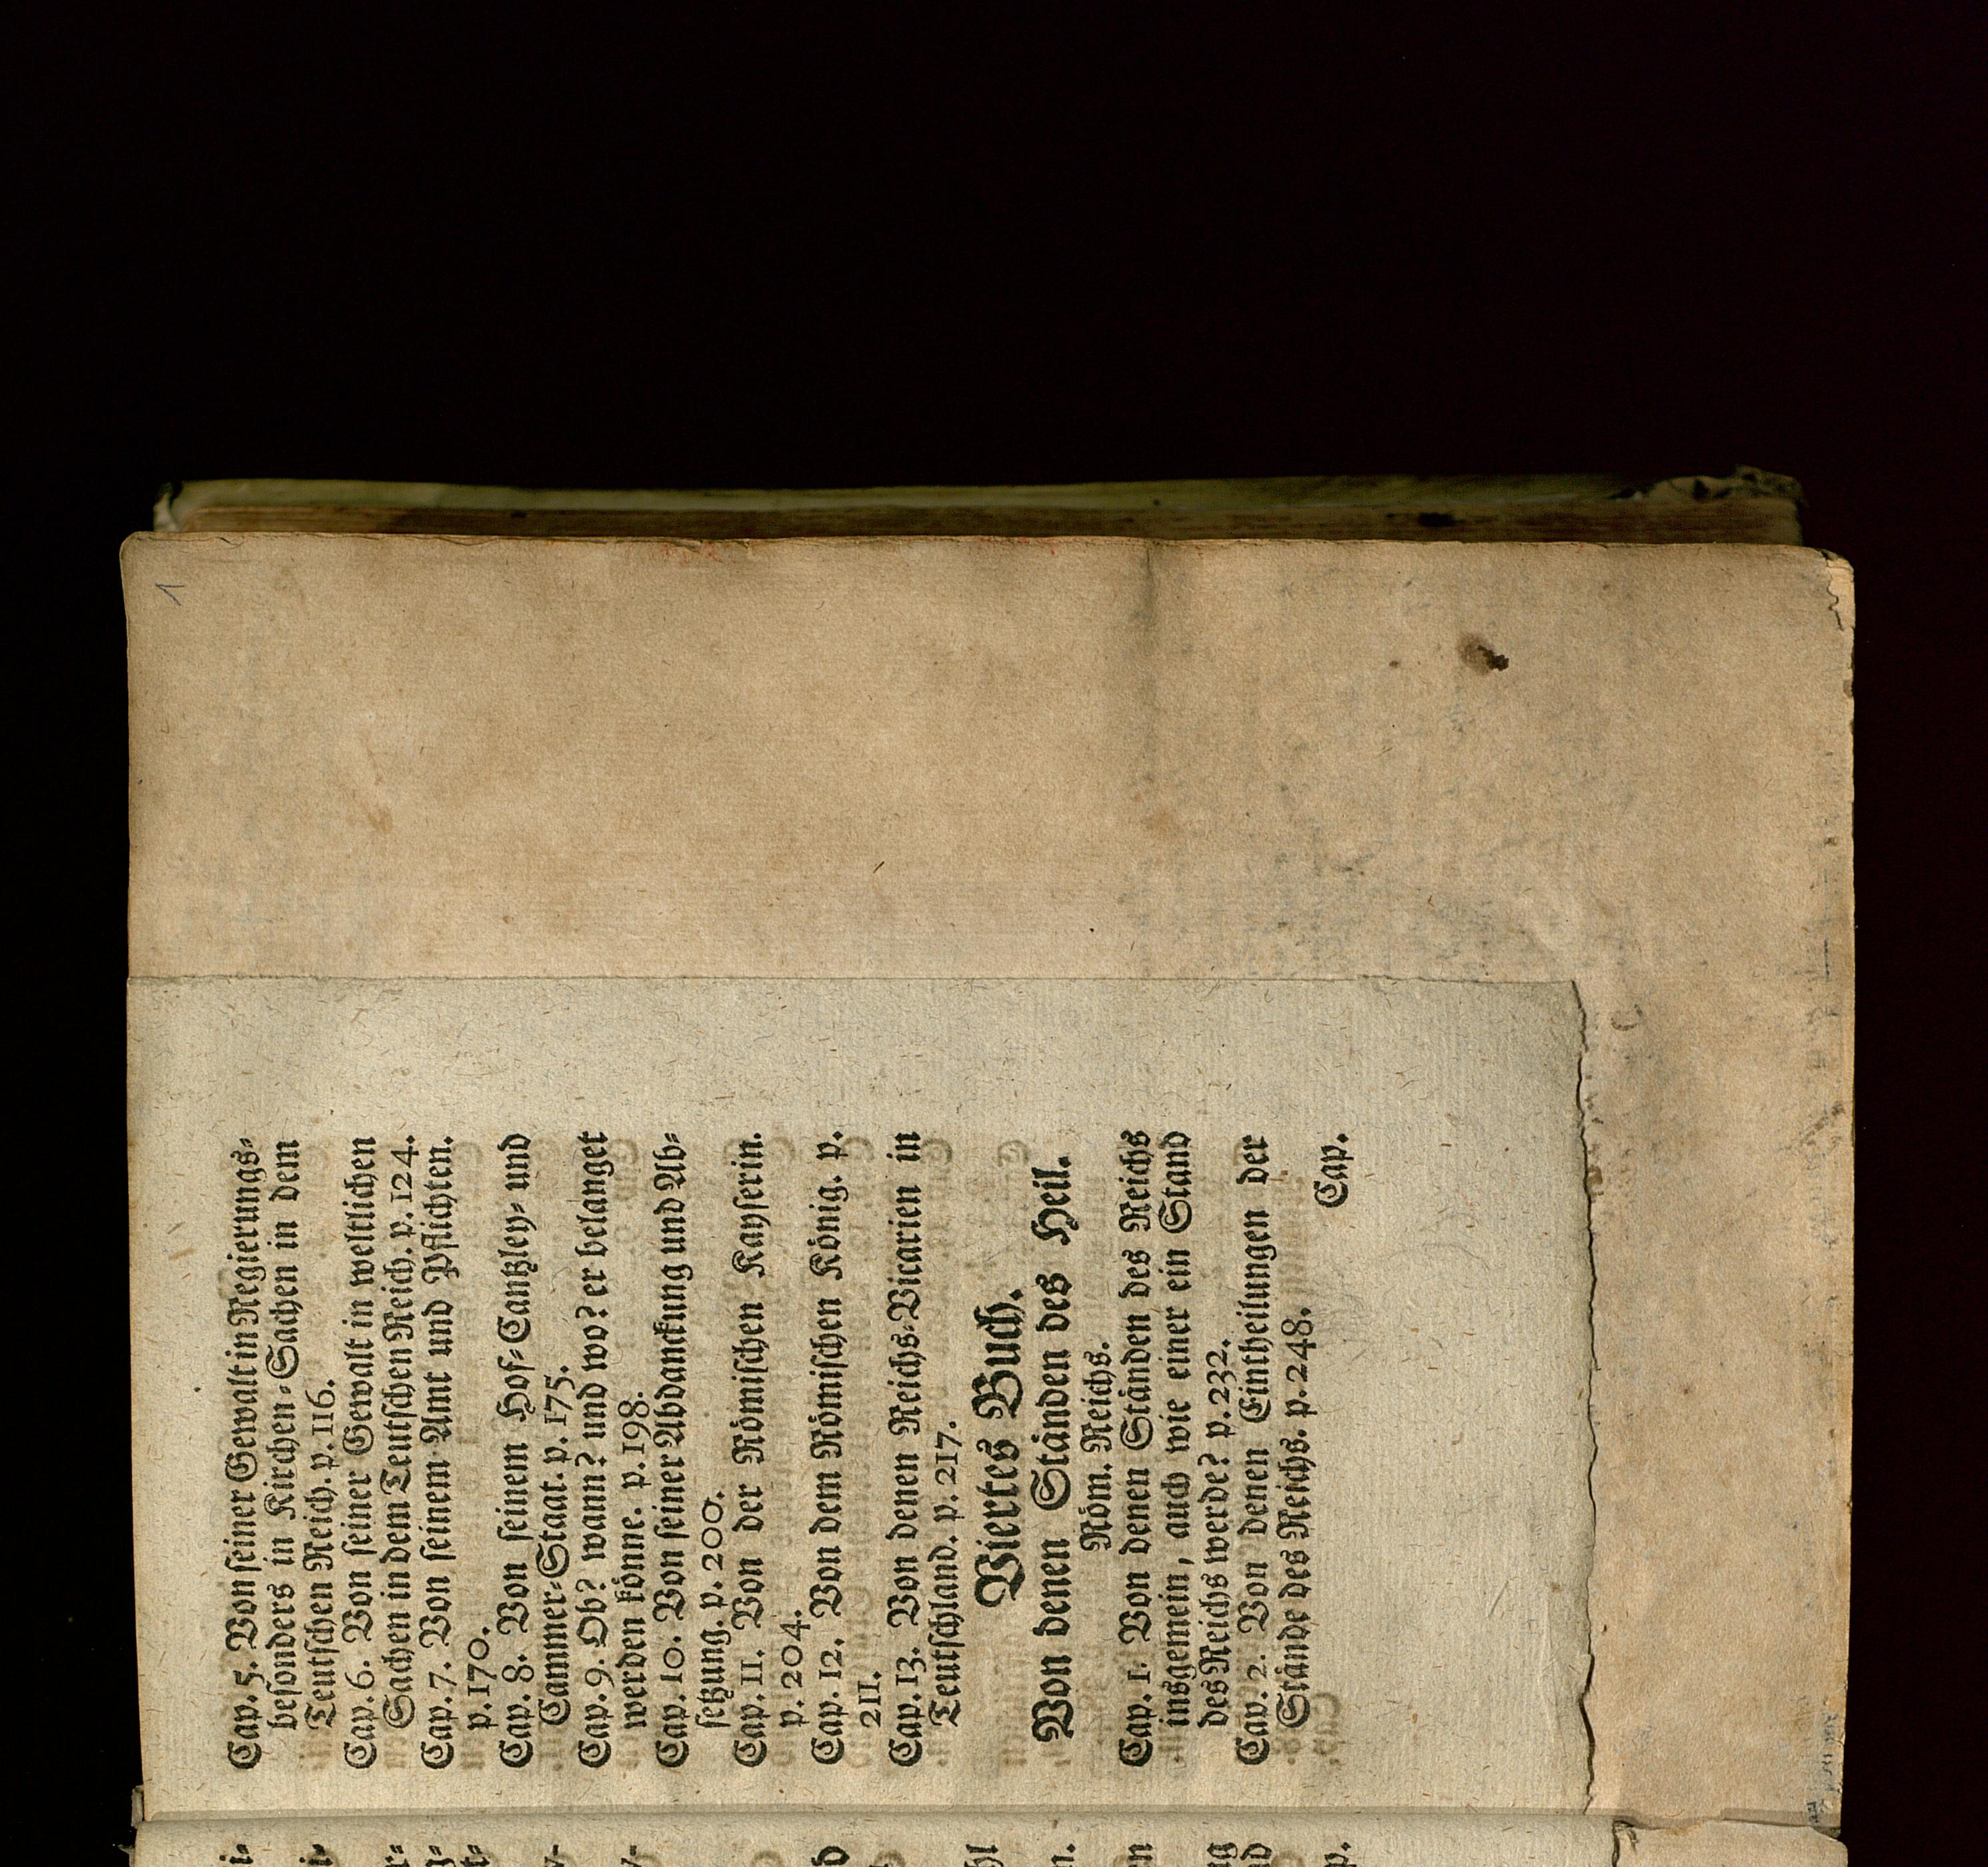 Cap. 5. Von seiner Gewalt in Regierungs-
besonders in Kirchen-Sachen in dem
Teutschen Reich. p. 116.
Cap. 6. Von seiner Gewalt in weltlichen
Sachen in dem Teutschen Reich. p. 124.
Cap. 7. Von seinem Amt und Pflichten.
p. 170.
Cap. 8. Von seinem Hof-Cantzley- und
Cammer-Staat. p. 175.
Cap. 9. Ob? wann? und wo? er belanget
werden könne. p. 198.
Cap. 10. Von seiner Abdanckung und Ab-
setzung. p. 200.
Cap. 11. Von der Römischen Kayserin.
p. 204.
Cap. 12. Von dem Römischen König. p.
211.
Cap. 13. Von denen Reichs-Vicarien in
Teutschland. p. 217.
Viertes Buch.
Von denen Ständen des Heil.
Röm. Reichs.
Cap. 1. Von denen Ständen des Reichs
insgemein, auch wie einer ein Stand
des Reichs werde? p. 232.
Cap. 2. Von denen Eintheilungen der
Stände des Reichs. p. 248.
Cap.
1